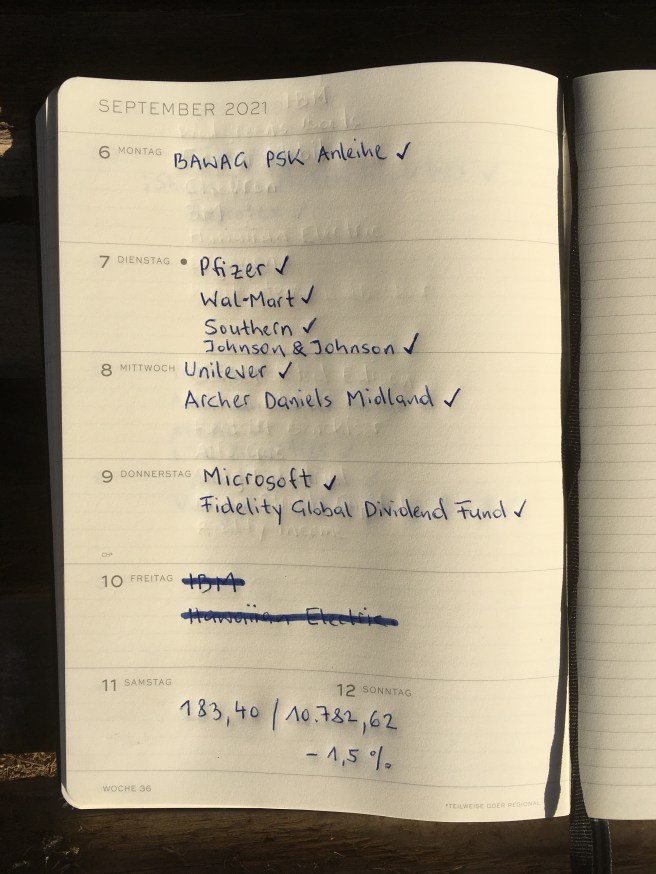 SEPTEMBER 2021
6 MONTAG BAWAG PSK Anleihe ✓
7 DIENSTAG • Pfizer ✓
Wal-Mart ✓
Southern ✓
Johnson & Johnson ✓
8 MITTWOCH Unilever ✓
Archer Daniels Midland ✓
9 DONNERSTAG Microsoft ✓
Fidelity Global Dividend Fund ✓
CH*
10 FREITAG IBM
Hawaiian Electric
11 SAMSTAG
12 SONNTAG
183,40 / 10.782,62
- 1,5 %
WOCHE 36
*TEILWEISE ODER REGIONAL